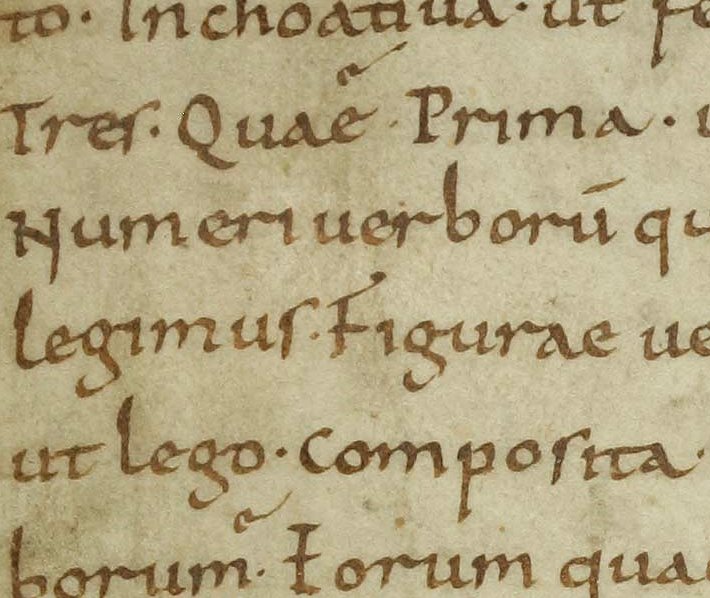 to. Inchoatiua. ut fe
Tres. Quae. Prima. u
Numeri uerborū qu
legimus. Figurae ue
ut lego. Composita.
borum. Eorum quae